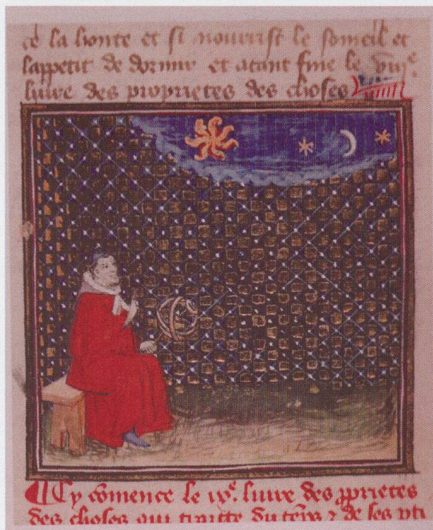 ce la honte et si nourrist le someil et
lappetit de dormir et atant fine le viij.e
livre des proprietes des choses
Cy cōmence le ix.e livre des pprietes
des choses qui traitte du tēms &